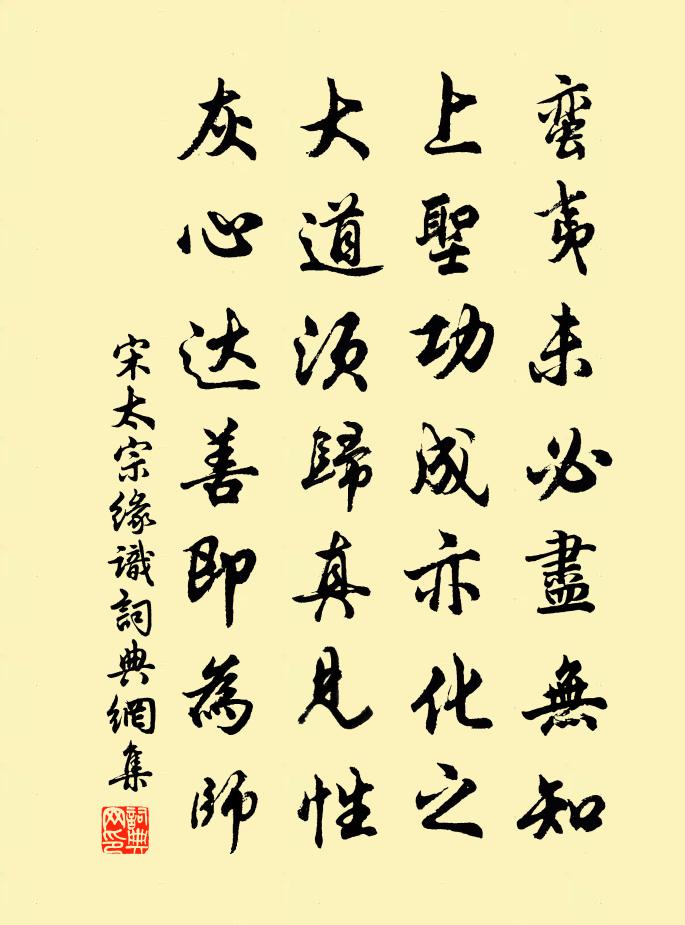 蛮夷未必盡無知
上聖功成亦化之
大道须歸真見性
灰心达善即為師
宋太宗缘識詞典網集
詞典
网印